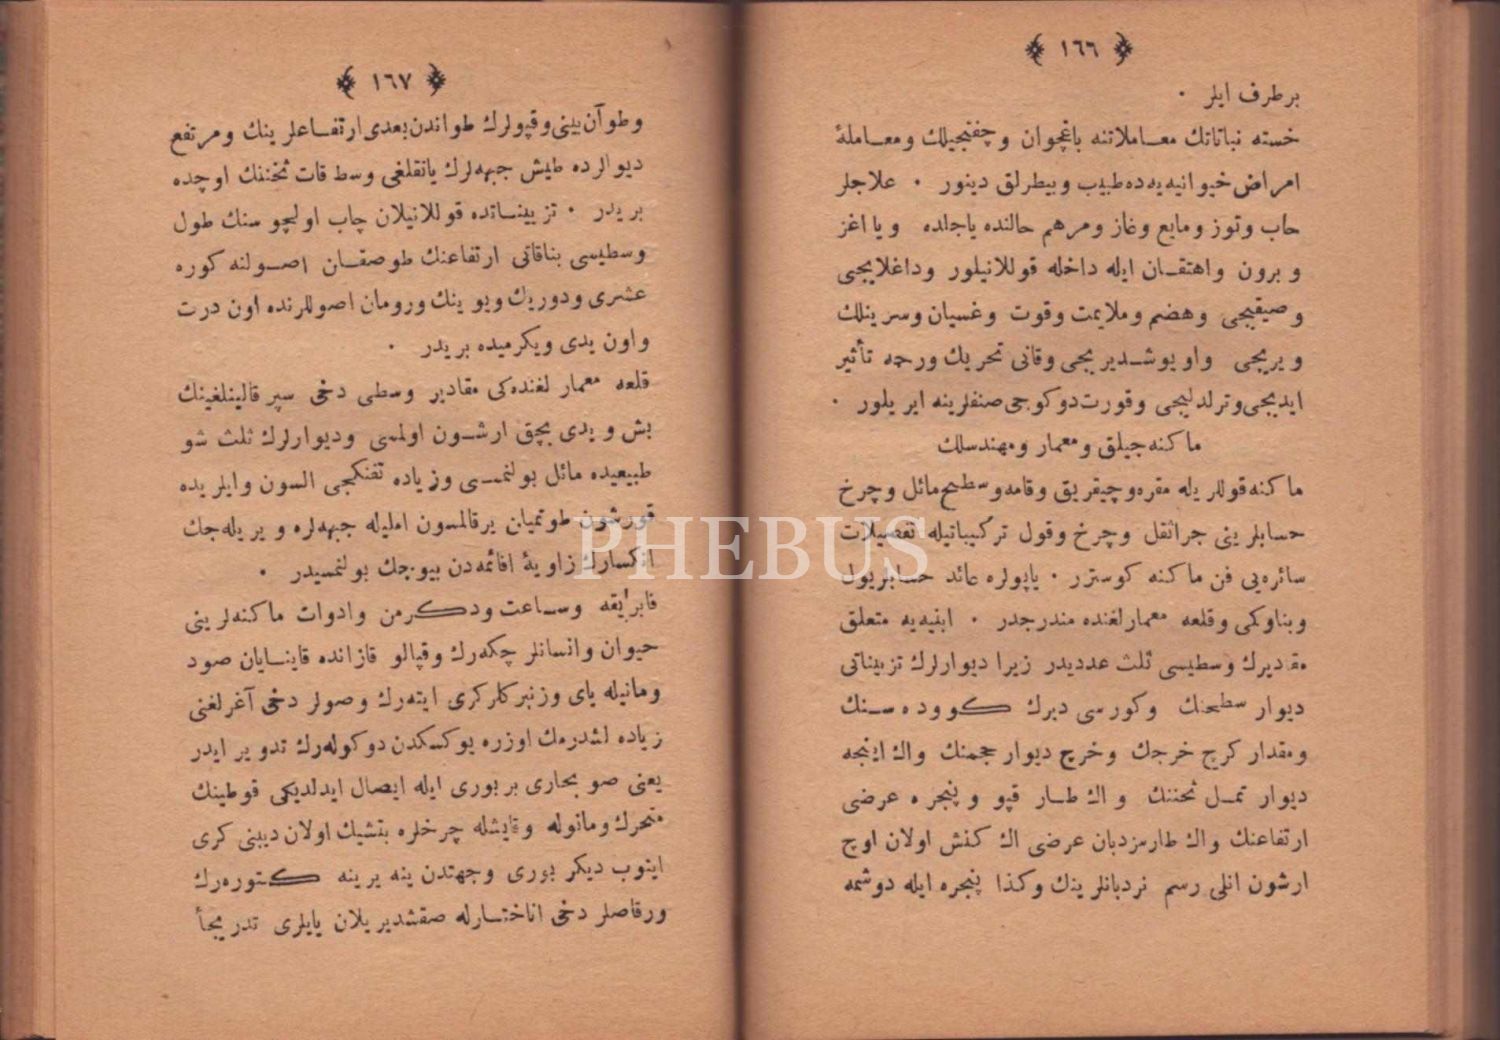 ﴾ ١٦٦ ﴿
برطرف ايلر ٠
خسته نباتاتك معـاملاتنه باغچوان وچفتجيلك ومعـاملهٔ
امراض حيوانيه‌يه‌ده طبيب وبيطرلق دينور ٠ علاجلر
حاب وتوز ومايع وغاز ومرهم حالنده ياجلده ويا اغز
وبرون واهتقـان ايله داخله قوللانيلور وداغلايجى
وصيقيجى وهضم وملايمت وقوت وغسيان وسرينلك
ويريجى واويوشـديريجى وقانى تحريك ورحمه تأثير
ايديجى وترلديجى وقورت دوكوجى صنفلرينه ايريلور ٠
ماكنه‌جيلق ومعمار ومهندسلك
ماكنه قوللريله مقره وچيقريق وقامه وسطيح مائل وچرخ
حسابلرينى جراثقل وچرخ وقول تركيباتيله تفصيلات
سائره‌يى فن ماكنه كوسترر ٠ ياپولره عائد حسابلريول
وبناوكمى وقلعه معمارلغنده مندرجدر ٠ ابنيه‌يه متعلق
مقديرك وسطيسى ثلث عددیدر زيرا ديوارلرك تزييناتى
ديوار سطيحنك وكورسى ديرك كـووده سـنك
ومقدار كرج خرجك وخرج ديوار حجمنك واك اينجه
ديوار تمـل ثخننك واك طـار قپو وپنجره عرضى
ارتفاعنك واك طارمزدبان عرضى اك كنش اولان اوچ
ارشون انلى رسم نردبانلرينك وكذا پنجره ايله دوشمه
﴾ ١٦٧ ﴿
وطوآن بينى وقپولرك طواندن بعدى ارتفـاعلرينك ومرتفع
ديوالرده طيش جبهه‌لرك يانقلغى وسط قات ثخننك اوچده
بريدر ٠ تزييناتده قوللانيلان چاپ اولچوسنك طول
وسطيسى بناقاتى ارتفاعنك طوصقـان اصـولنه كوره
عشرى ودوريك ويوينك ورومان اصوللرنده اون درت
واون يدى ويكرميده بريدر ٠
قلعه معمار لغنده‌كى مقادير وسطى دخى سپر قالينلغينك
بش ويدى بچق ارشـون اولمسى وديوارلرك ثلث شو
طبيعيده مائل بولنمـسى وزياده تفنكجى السون وايلريده
قورشون طوتميان يرقالمسون امليله جبهه‌لره ويريله‌جك
انكسارك زاويهٔ قائمه‌دن بيوجك بولنمسيدر ٠
فابريقه وسـاعت ودكـرمن وادوات ماكنه‌لرينى
حيوان وانسانلر چكه‌رك وقپالو قازانده قاينـايان صود
ومانيله ياى وزنبركلركرى ايته‌رك وصولر دخى آغرلغنى
زياده لشدرمك اوزره يوكسكدن دوكوله‌رك تدوير ايدر
يعنى صو بخارى بربورى ايله ايصال ايدلديكى قوطينك
متحرك ومانوله وقايشله چرخلره بتشيك اولان ديبنى كرى
ايتوب ديكر بورى وجهتدن ينه يرينه كـتوره‌رك
ورقاصلر دخى اناختـارله صقشديريلان يايلرى تدريجاً
PHEBUS